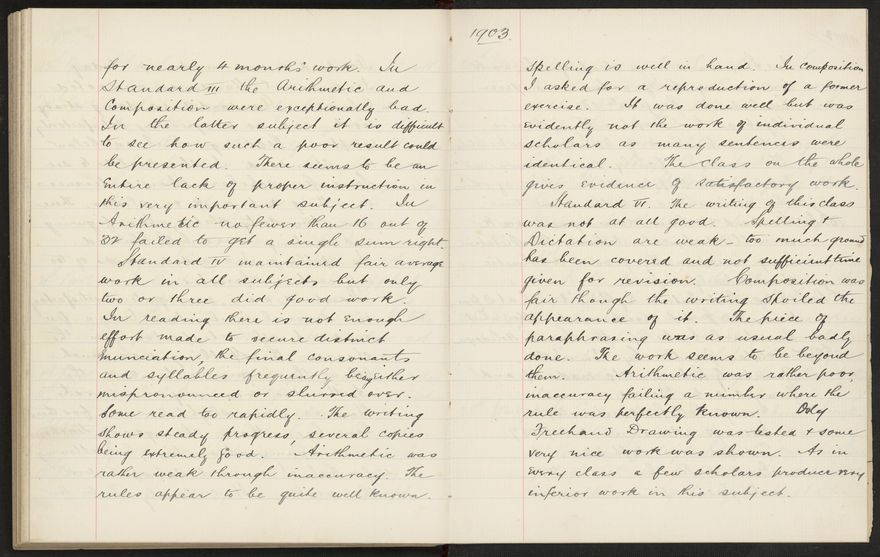 for nearly 4 months' work. In
Standard III the Arithmetic and
Composition were exceptionally bad.
In the latter subject it is difficult
to see how such a poor result could
be presented. There seems to be an
entire lack of proper instruction in
this very important subject. In
Arithmetic no fewer than 16 out of
32 failed to get a single sum right.
Standard IV maintained fair average
work in all subjects but only
two or three did good work.
In reading there is not enough
effort made to secure distinct
enunciation, the final consonants
and syllables frequently being either
mispronounced or slurred over.
Some read too rapidly. The writing
shows steady progress, several copies
being extremely good. Arithmetic was
rather weak through inaccuracy. The
rules appear to be quite well known.
1903.
Spelling is well in hand. In composition
I asked for a reproduction of a former
exercise. It was done well but was
evidently not the work of individual
scholars as many sentences were
identical. The class on the whole
gives evidence of satisfactory work.
Standard VI. The writing of this class
was not at all good. Spelling &
Dictation are weak – too much ground
has been covered and not sufficient time
given for revision. Composition was
fair though the writing spoiled the
appearance of it. The piece of
paraphrasing was as usual badly
done. The work seems to be beyond
them. Arithmetic was rather poor,
inaccuracy failing a number where the
rule was perfectly known. Only
Freehand Drawing was tested & some
very nice work was shown. As in
every class a few scholars produce very
inferior work in this subject.